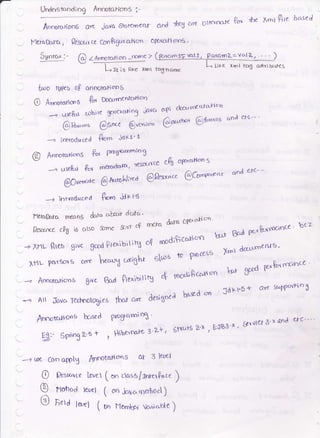 Understanding Annotations :-
Annotations are Java Statement and they are alternate for the Xml file based
MetaData, Resource Configuration operations.
Syntax:- @ <Annotation_name> (Param1=val1, Param2=val2, ...)
It is like xml tagname
Like xml tag attributes
two types of annotations
① Annotations for Documentation
→ useful while generating java api documentation
@Params @Since @version @author @throws and etc...
→ introduced from jdk1.1
② Annotations for programming
→ useful for metadata, resource cfg operations
@Override @AutoWired @Resource @Component and etc..
→ introduced from jdk1.5
MetaData means data about data.
Resource cfg is also some sort of meta data operation
→ XML files give good flexibility of modification but Bad performance. bcz
XML parsers are heavy weight slows to process Xml documents.
→ Annotations give Bad flexibility of modification but good performance.
→ All Java Technologies that are designed based on jdk1.5+ are supporting
Annotations based programing.
Eg:- Spring 2.5+ , Hibernate 3.2+, struts 2.x, EJB3.x, servlet 3.x and etc...
→ we can apply Annotations at 3 level
① Resource level ( on class/Interface )
② Method level ( on java method )
③ Field level ( on Member Variable )